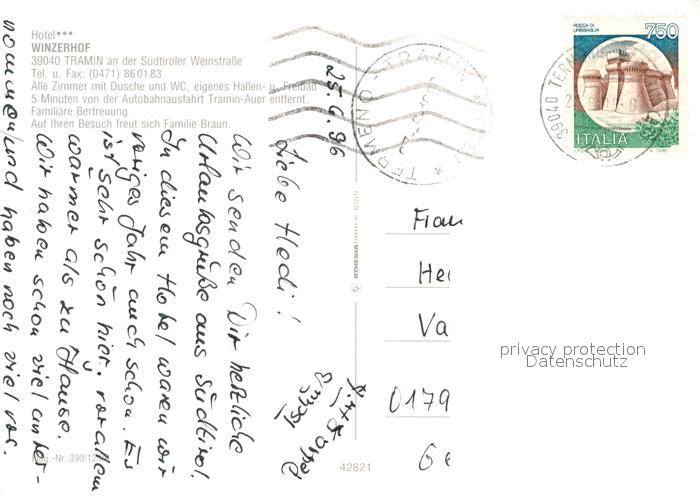 Hotel***
WINZERHOF
39040 TRAMIN an der Südtiroler Weinstraße
Tel. u. Fax: (0471) 860183
Alle Zimmer mit Dusche und WC, eigenes Hallen- u. Freibad
5 Minuten von der Autobahnausfahrt Tramin-Auer entfernt.
Familiäre Bertreuung.
Auf Ihren Besuch freut sich Familie Braun.
25.6.96
Liebe Hedi!
Wir senden Dir herzliche
Urlaubsgrüße aus Südtirol.
In diesem Hotel waren wir
voriges Jahr auch schon. Es
ist sehr schön hier, vor allem
wärmer als zu Hause.
Wir haben schon viel unter-
nommen und haben noch viel vor.
Tschüß
Petra +
ATHESIADRUCK BOZEN
42821
TERMENO TRAMIN
39040
ROCCA DI
URBISAGLIA
750
ITALIA
Frau
He
Va
0179
Ge
privacy protection
Datenschutz